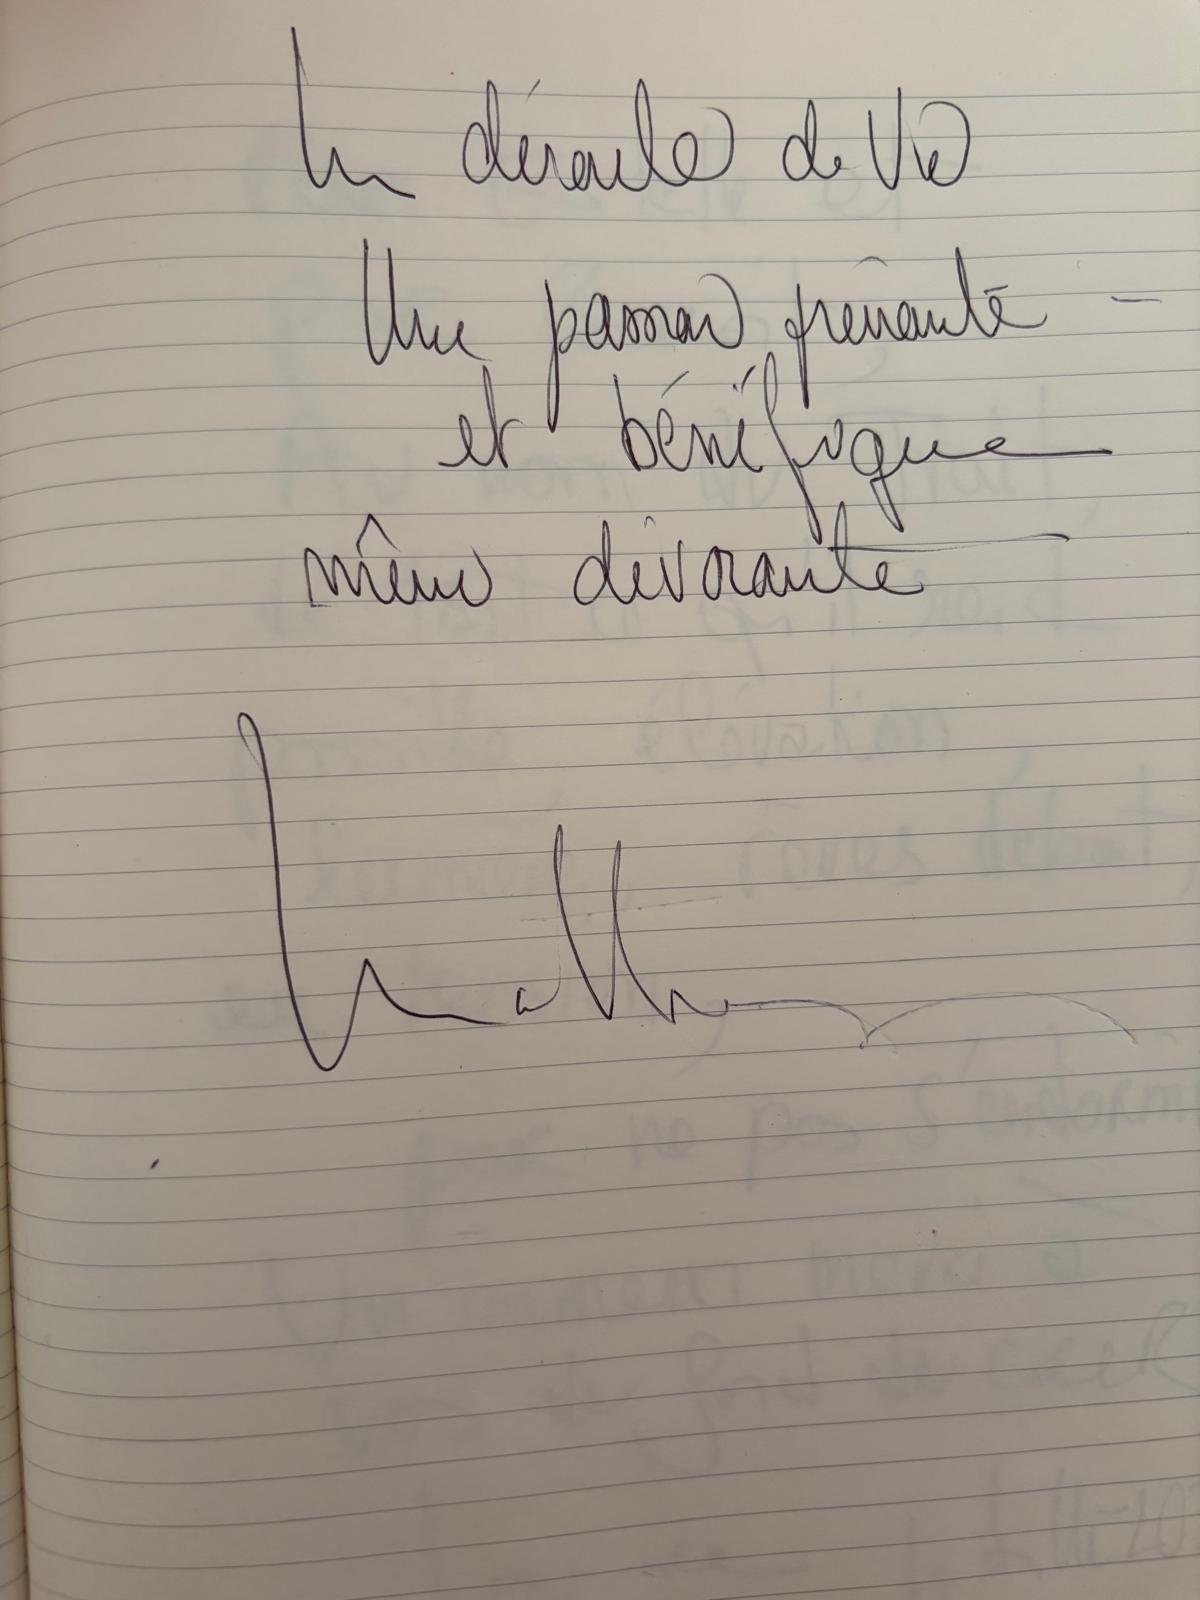 Un déroulé de vie
Une passion prenante -
et bénéfique
même dévorante